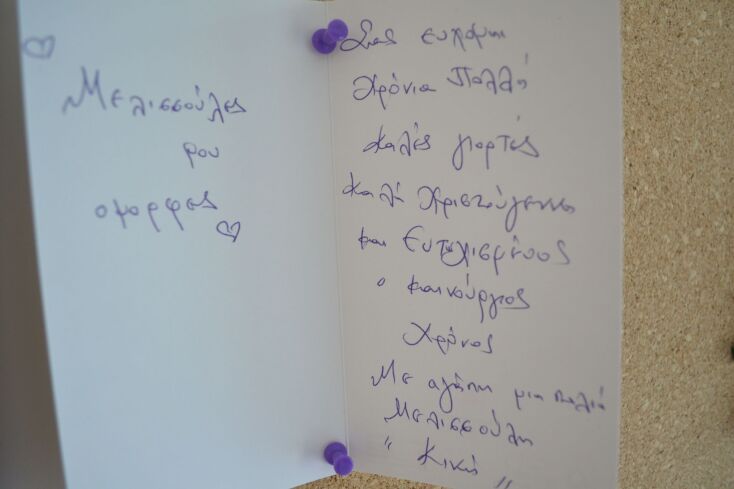 Μελισσούλες
μου
όμορφες
Σας εύχομαι
Χρόνια Πολλά
Καλές γιορτές
Καλά Χριστούγεννα
και Ευτυχισμένος
ο καινούργιος
Χρόνος
Με αγάπη μια παλιά
Μελισσούλη
" Κική "